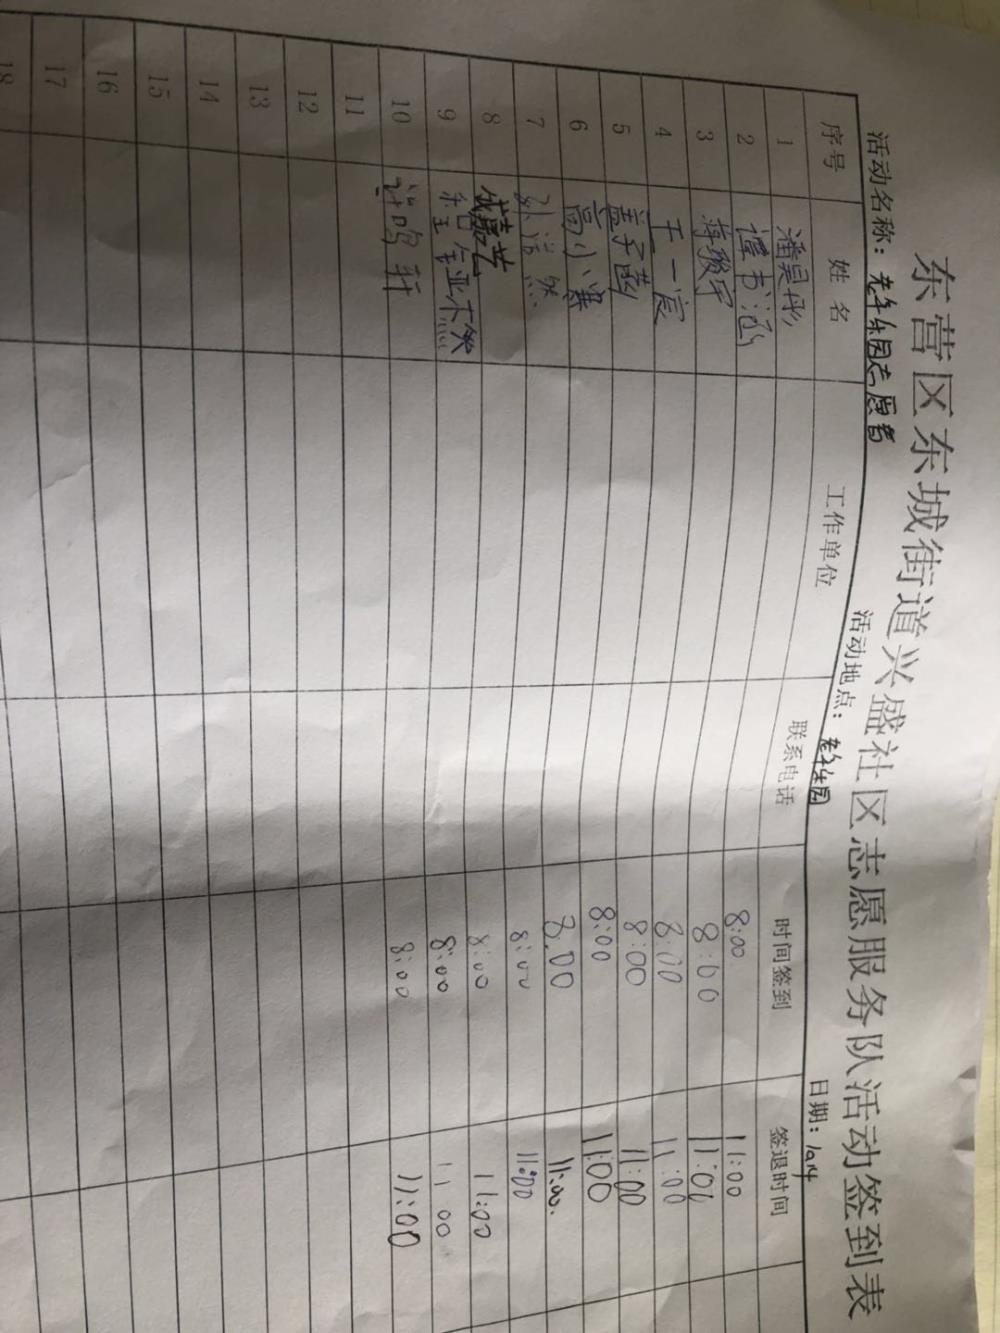 东营区东城街道兴盛社区志愿服务队活动签到表
活动名称：老年乐园志愿者 活动地点：老年乐园 日期：10.4
序号 姓名 工作单位 联系电话 时间签到 签退时间
1 潘昊彤 8:00 11:00
2 谭书涵 8:00 11:00
3 蒋骏宇 8:00 11:00
4 王一宸 8:00 11:00
5 盖子菡 8:00 11:00
6 高小寒 8:00 11:00
7 孙浩然 8:00 11:00
8 成嘉艺 8:00 11:00
9 8:00 11:00
10 许鸣轩 8:00 11:00
11
12
13
14
15
16
17
18